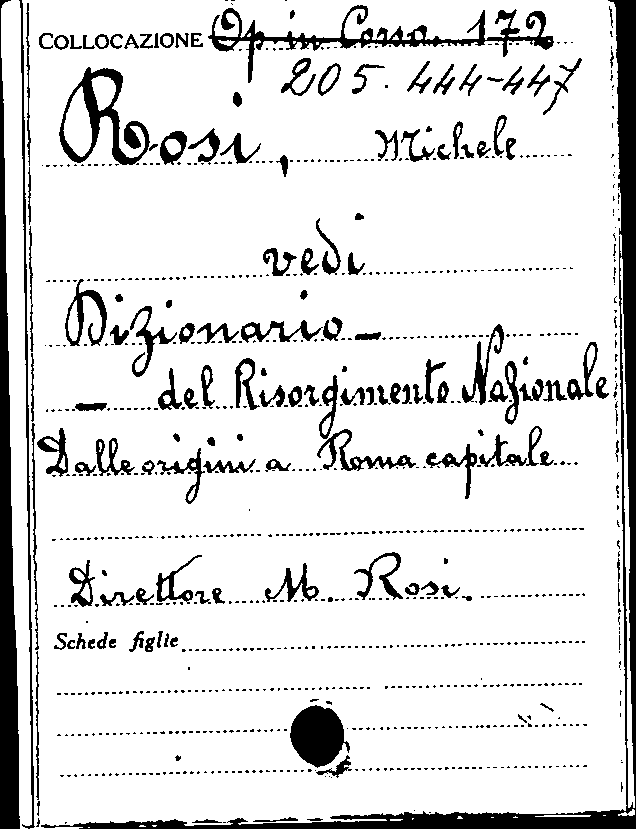 COLLOCAZIONE Op in Corso. 172
205. 444-447
Rosi, Michele
vedi
Dizionario _
_ del Risorgimento Nazionale
Dalle origini a Roma capitale
Direttore M. Rosi.
Schede figlie